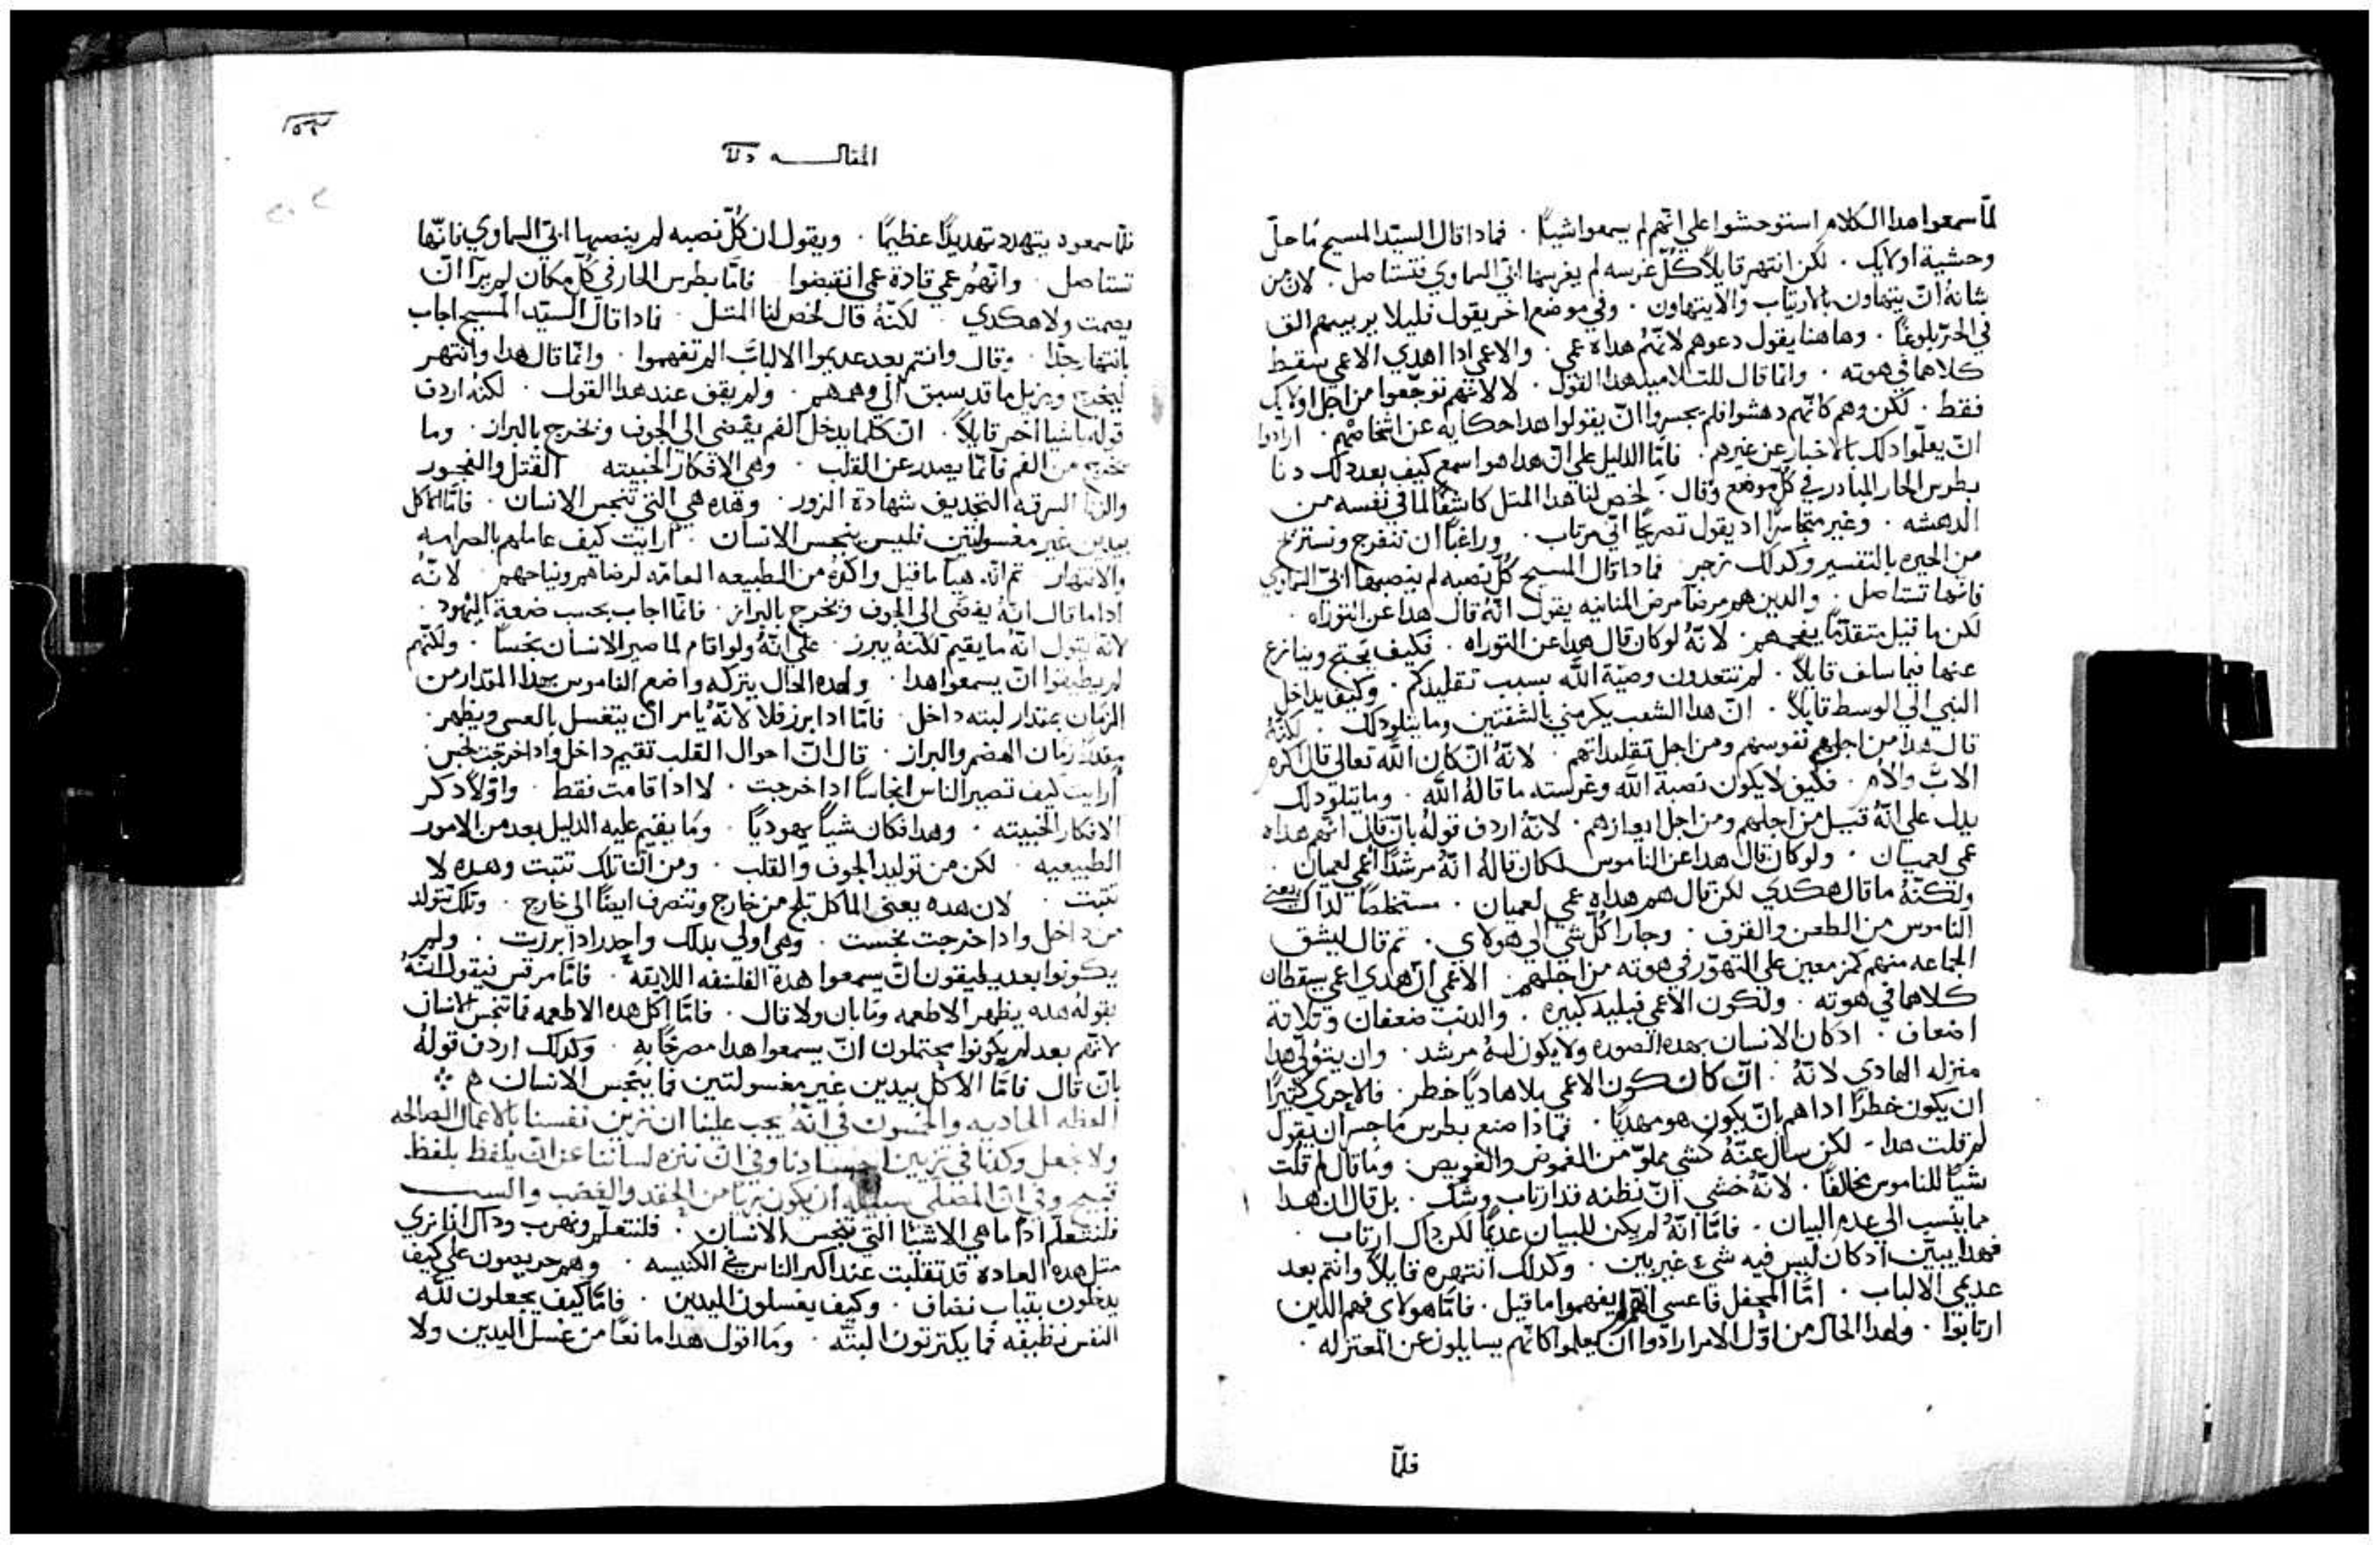 لمّا سمعوا هدا الكلام استوحشوا علي انّهم لم يسمعوا شيئًا . فمادا قال السيّد المسيح ما حلّ
وحشية اولايك . لكن انتهر قايلاً كُلّ غرسه لم يغرسها ابي السماوي فتستاصل . لان من
شانهُ انّ يتهاون بالارتياب والا يتهاون . وفي موضع اخر يقول قليلا يريبهم الق
في الحرّ بلوغًا . وهاهنا يقول دعوهم لانّهُم هداه عمي . والاعمي ادا اهدي الاعمي سقط
كلاهما في هوته . وانما قال للتلاميد هدا القول . لا لانهم توجّعوا من اجل اولايك
فقط . لكن وهم كانّهم دهشوا فلم يجسروا انّ يقولوا هدا حكايه عن اشخاصهم . ارادوا
انّ يعلّموا دلك بالاخبار عن غيرهم . فامّا الدليل علي انّ هدا هو اسمع كيف بعد دلك دنا
بطرس الحار المبادر في كُلّ موضع وقال . لخص لنا هدا المتل كاشفًا لما في نفسه من
الدهشه . وغير متجاسرًا اد يقول تصريحًا انّي مرتاب . وراغبًا ان تتفرج وتستريح
من الحيره بالتفسير وكدلك زجر . فمادا قال المسيح كُلّ نصبه لم ينصبها ابي السماوي
فانّها تستاصل . والدين هم مرضا مرض المنانيه يقول انّهُ قال هدا عن التوراه .
لكن ما قيل متقدّمًا يفحمهم . لانّهُ لو كان قال هدا عن التوراه . فكيف يحتج وينازع
عنها فيما سلف قايلاً . لم تتعدون وصيّة الله بسبب تقليدكم . وكيف يداخل
النبي الي الوسط قايلاً . انّ هدا الشعب يكرمني بالشفتين وما يتلو دلك . لكنّهُ
قال هدا من اجلهم نفوسهم ومن اجل تقليداتهم . لانّهُ انّ كان الله تعالي قال اكرم
الابّ والام . فكيف لا يكون نصبة الله وغرسته ما قالهُ الله . وما يتلو دلك
يدل علي انّهُ قيل من اجلهم ومن اجل ايعازهم . لانّهُ اردف قولهُ بانّ قال انّهم هداه
عمي لعميان . ولو كان قال هدا عن الناموس لكان قالهُ انّهُ مرشدًا اعمي لعميان .
ولكنّهُ ما قال هكدي لكن قال هم هداه عمي لعميان . مستخلصًا لداك يعني
الناموس من الطعن والقرف . وجارًا كُلّ شي الي هولاي . تم قال ليشق
الجماعه منهم كمزمعين علي التهوّر في هوته من اجلهم . الاعمي انّ هدي اعمي يسقطان
كلاهما في هوته . ولكون الاعمي فبليه كبيره . والدنب ضعفان وتلاتة
اضعاف . ادكان الانسان بهده الصوره ولا يكون لهُ مرشد . وان يتولّي هدا
منزله الهادي لانّهُ . انّ كان كون الاعمي بلا هاديًا خطر . فالاحري كثيرًا
ان يكون خطرًا اداهم بانّ يكون هو مهديًا . فمادا صنع بطرس ما جسر ان يقول
لم قلت هدا . لكن سال عنّهُ كشي مملوّ من الغموض والغويص . وما قال لم قلت
شيًا للناموس مخالفًا . لانّهُ خشي انّ نظنه قد ارتاب وشك . بل قال ان هدا
ما ينسب الي عدم البيان . فامّا انّهُ لم يكن للبيان عديمًا لكن داك ارتاب .
فهدا يبيّن اد كان ليس فيه شيء غير بين . وكدلك انتهره قايلاً وانتم بعد
عديمي الالباب . امّا المحفل فاعسي انهم لم يفهموا ما قيل . فامّا هولاي فهم الدين
ارتابوا . ولهدا الحال من اوّل الامر ارادوا ان يعلموا كانّهم يسايلون عن المعتزله .
فلمّا
المقالـــــه
فلمّا سمعوه يتهدد تهديدًا عظيمًا . ويقول ان كُلّ نصبه لم ينصبها ابي السماوي فانّها
تستاصل . وانّهُم عمي قادة عمي انقبضوا فامّا بطرس الحار في كُلّ مكان لم يرا انّ
يصمت ولا هكدي . لكنّهُ قال لخص لنا المتل . فادا قال السيّد المسيح اجاب
بانتهار جدًا . وقال وانتم بعد عديموا الالباب الم تفهموا . وانّما قال هدا وانتهر
ليخرج ويزيل ما قد سبق الي وهمهم . ولم يقف عند هدا القول . لكنهُ اردف
قوله باشيا اخر قايلاً . انّ كلما يدخل الفم يقضي الي الجوف ويخرج بالبراز . وما
يخرج من الفم فانّما يصدر عن القلب . وهي الافكار الخبيته القتل والفجور
والزنا السرقه التجديف شهادة الزور . وهده هي التي تنجس الانسان . فامّا الاكل
بيدين غير مغسولتين فليس ينجس الانسان . ارايت كيف عاملهم بالصرامه
والانتهار تم انّه هيا ما قيل واكّده من الطبيعه العامّه لرضاهم ونياحهم لانّهُ
ادا ما قال انّهُ يفضي الي الجوف ويخرج بالبراز . فانّما اجاب بحسب ضعة اليهود .
لانّه يقول انّهُ ما يقيم لكنّهُ يبرز . علي انّهُ ولو اقام لما صير الانسان نجسًا . ولكنّهم
لم يطيقوا انّ يسمعوا هدا . ولهده الحال يتركه واضع الناموس بهدا المقدار من
الزمان بمقدار لبته داخل . فامّا ادا برز فلا لانّهُ يامر ان يتغسل بالعسي ويطهر .
مقدّرًا زمان الهضم والبراز . قال انّ احوال القلب تقيم داخل وادا خرجت نجس
ارايت كيف تصير الناس انجاسًا ادا خرجت . لا ادا قامت فقط . واوّلاً دكر
الافكار الخبيته . وهدا فكان شيًا يهوديًا . وما يقيم عليه الدليل بعد من الامور
الطبيعيه . لكن من توليد الجوف والقلب . ومن انّ تلك تتبت وهده لا
تتبت . لان هده يعني الماكل تلج من خارج وتنصرف ايضًا الي خارج . وتلك تتولد
من داخل وادا خرجت نجست . وهي اولي بدلك واجدر ادا برزت . ولم
يكونوا بعد يطيقون انّ يسمعوا هده الفلسفه اللايقه . فامّا مرقس فيقول انّهُ
بقولهُ هده يطهر الاطعمه وما بان ولا قال . فامّا اكل هده الاطعمه فما تنجس الانسان
لانّهم بعد لم يكونوا يحتملون انّ يسمعوا هدا مصرحًا به . وكدلك اردف قولهُ
بانّ قال فامّا الاكل بيدين غير مغسولتين فما ينجس الانسان هم
العظه الحاديه والخمسون في انّهُ يجب علينا ان نزين نفسنا بالاعمال الصالحه
ولا نجعل وكدنا في تزيين اجسادنا وفي انّ ننزه لساننا عن انّ يلفظ بلفظ
قبيح وفي انّ المصلّي سبيله ان يكون بريًا من الحقد والغضب والســـب
فلنتعلّم ادًا ما هي الاشيا التي تنجس الانسان . فلنتعلّم ونهرب وداك انا نري
متل هده العاده قد تقلبت عند اكتر الناس في الكنيسه . وهم حريصون علي كيف
يدخلون بتياب نضاف . وكيف يغسلون اليدين . فامّا كيف يجعلون لله
النفس نظيفه فما يكترتون البتّه . وما اقول هدا مانعًا من غسل اليدين ولا